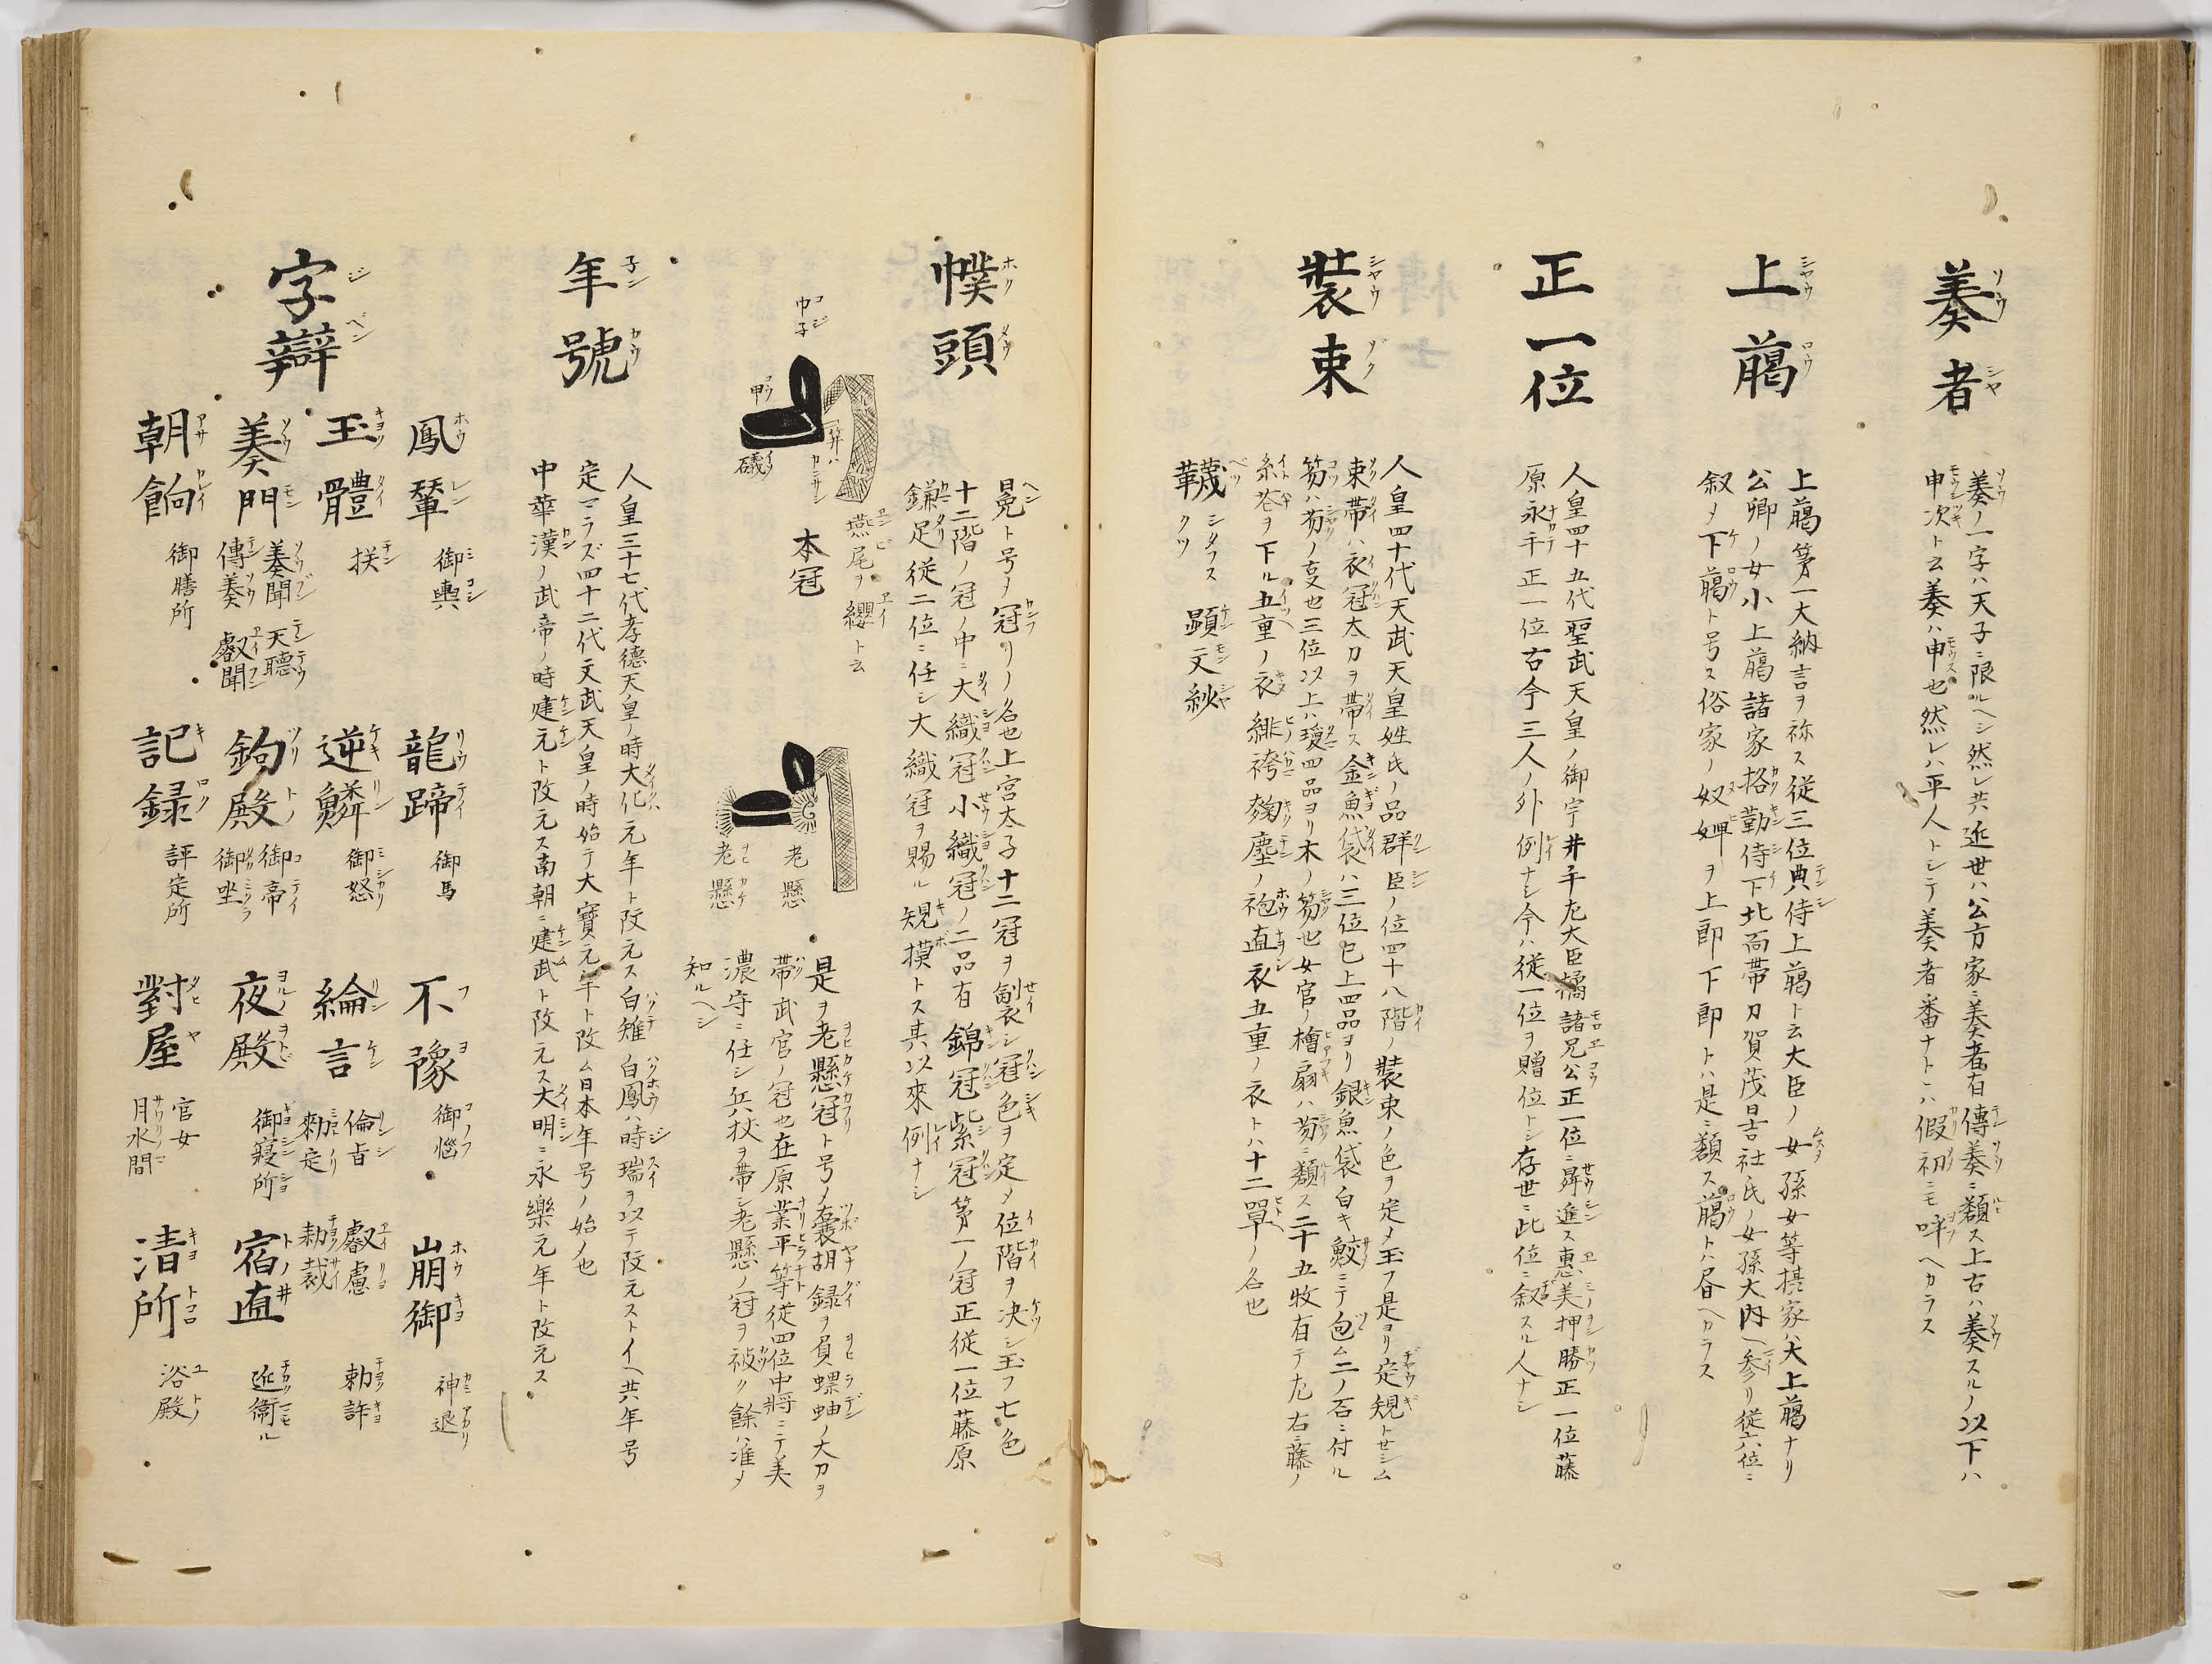 奏者
奏ノ一字ハ天子ニ限ルヘシ然レ共近世ハ公方家ニ奏者有傳奏ニ類ス上古ハ奏スルノ以下ハ
申次ト云奏ハ申也然レハ平人トシテ奏者番ナトヽハ假初ニモ呼ヘカラス
上﨟
上﨟第一大納言ヲ祢ス従三位典侍上﨟ト云大臣ノ女孫女等摂家ハ大上﨟ナリ
公卿ノ女小上﨟諸家挌勤侍下北面帯刀賀茂日吉社氏ノ女孫大内ヘ参リ従六位ニ
叙メ下﨟ト号ス俗家ノ奴婢ヲ上郎下郎トハ是ニ類ス﨟トハ昼ヘカラス
正一位
人皇四十五代聖武天皇ノ御宇井手左大臣橘諸兄公正一位ニ昇進ス恵美押勝正一位藤
原永手正一位古今三人ノ外例ナシ今ハ従一位ヲ贈位トシ存世ニ此位ニ叙スル人ナシ
裝束
人皇四十代天武天皇姓氏ノ品群臣ノ位四十八階ノ裝束ノ色ヲ定メ玉フ是ヨリ定規トセシム
束帯ハ衣冠太刀ヲ帯ス金魚袋ハ三位已上四品ヨリ銀魚袋白キ鮫ニテ包ム二ノ石ニ付ル
笏ハ笏ノ変也三位以上ハ瓊四品ヨリ木ノ笏也女官ノ檜扇ハ笏ニ類ス二十五牧有テ左右ニ藤ノ
糸花ヲ下ル五重ノ衣緋袴麹塵ノ袍直衣五重ノ衣トハ十二單ノ名也
韈 シタフス クツ 顕文紗
幞頭
冕ト号ヲ冠リノ名也上宮太子十二冠ヲ製シ冠色ヲ定メ位階ヲ决シ玉フ七色
十二階ノ冠ノ中ニ大織冠小織冠ノ二品有錦冠紫冠第一ノ冠正従一位藤原
鎌足従二位ニ任シ大織冠ヲ賜ル規摸トス其以來例ナシ
燕尾ヲ纓ト云
本冠
巾子
甲
簪ハ カンサシ
礒
老懸
老懸
是ヲ老懸冠ト号ノ嚢胡録ヲ負螺蚰ノ太刀ヲ
帯武官ノ冠也在原業平等従四位中將ニテ美
濃守ニ任シ兵杖ヲ帯シ老懸ノ冠ヲ被ク餘ハ准メ
知ルヘシ
年號
人皇三十七代孝徳天皇ノ時大化元年ト改元ス白雉白鳳ハ時瑞ヲ以テ改元ストイヘ共年号
定マラズ四十二代文武天皇ノ時始テ大寶元年ト改ム日本年号ノ始ノ也
中華漢ノ武帝ノ時建元ト改元ス南朝ニ建武ト改元ス大明ニ永樂元年ト改元ス
字辯
鳳輦 御輿
龍蹄 御馬
不豫 御惱
崩御 神退
玉體
逆鱗 御怒
綸言 倫旨 勅定
叡慮 勅裁
勅許
奏門 奏聞 傳奏
天聴 叡聞
鉤殿 御帝 御坐
夜殿 御寢所
宿直 近衞ル
朝餉 御膳所
記録 評定所
對屋 官女 月水間
清所 浴殿